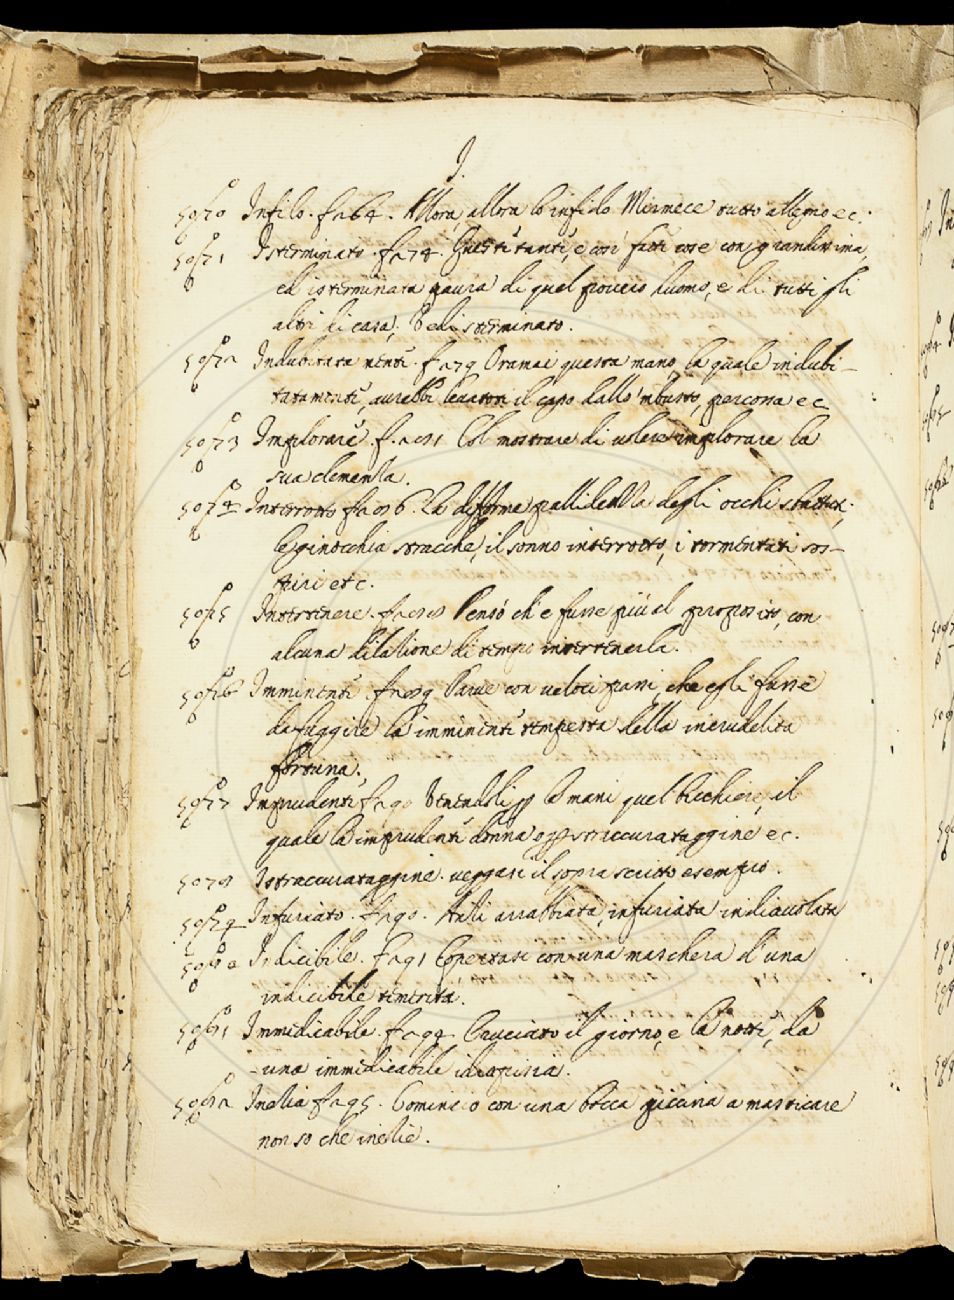 I.
5070 Infilo. f. 264. Allora, allora lo infilo Mirmece tutto allegro ec.
5071 Isterminato. f. 274. Questi tanti, e così fatti cose con grandissima,
ed isterminata paura di quel poveio duomo, e di tutti gli
altri di casa. Vedi sterminato.
5072 Indubitatamenti. f. 279 Oramai questa mano, la quale indubi-
tatamenti, averebbi levaton il capo dallo 'mbusto, percossa ec
5073 Implorare. f. 281 Col mostrare di volere implorare la
sua clemenza.
5074 Interrotto f. 286. La difforme pallidezza degli occhi
le ginocchia stracche, il sonno interrotto, i tormentati sos-
piri etc.
5075 Intertenere. f. 288 Pensò ch'e fusse più al proposito, con
alcuna dilazione di tempo intertenerla.
5076 Imminenti. f. 289 Parve con veloci passi, che egli fusse
da fuggire la imminenti tempesta della incrudelita
fortuna.
5077 Imprudenti f. 290 Tenendoli p le mani quel bicchiere, il
quale la imprudenti donna o p straccurataggine ec.
5078 Istraccurataggine. veggasi il sopra scritto esempio.
5079 Infuriato. f. 290. Anzi arrabbiata, infuriata indiavolata
5080 Indicibile. f. 291 Copertasi con una maschera d'una
indicibile temerità.
5081 Immedicabile. f. 294 Cruciato il giorno, e la notti, da
una immidicabile idropisia.
5082 Inezia f. 295. Cominciò con una bocca piccina a masticare
non so che inezie.